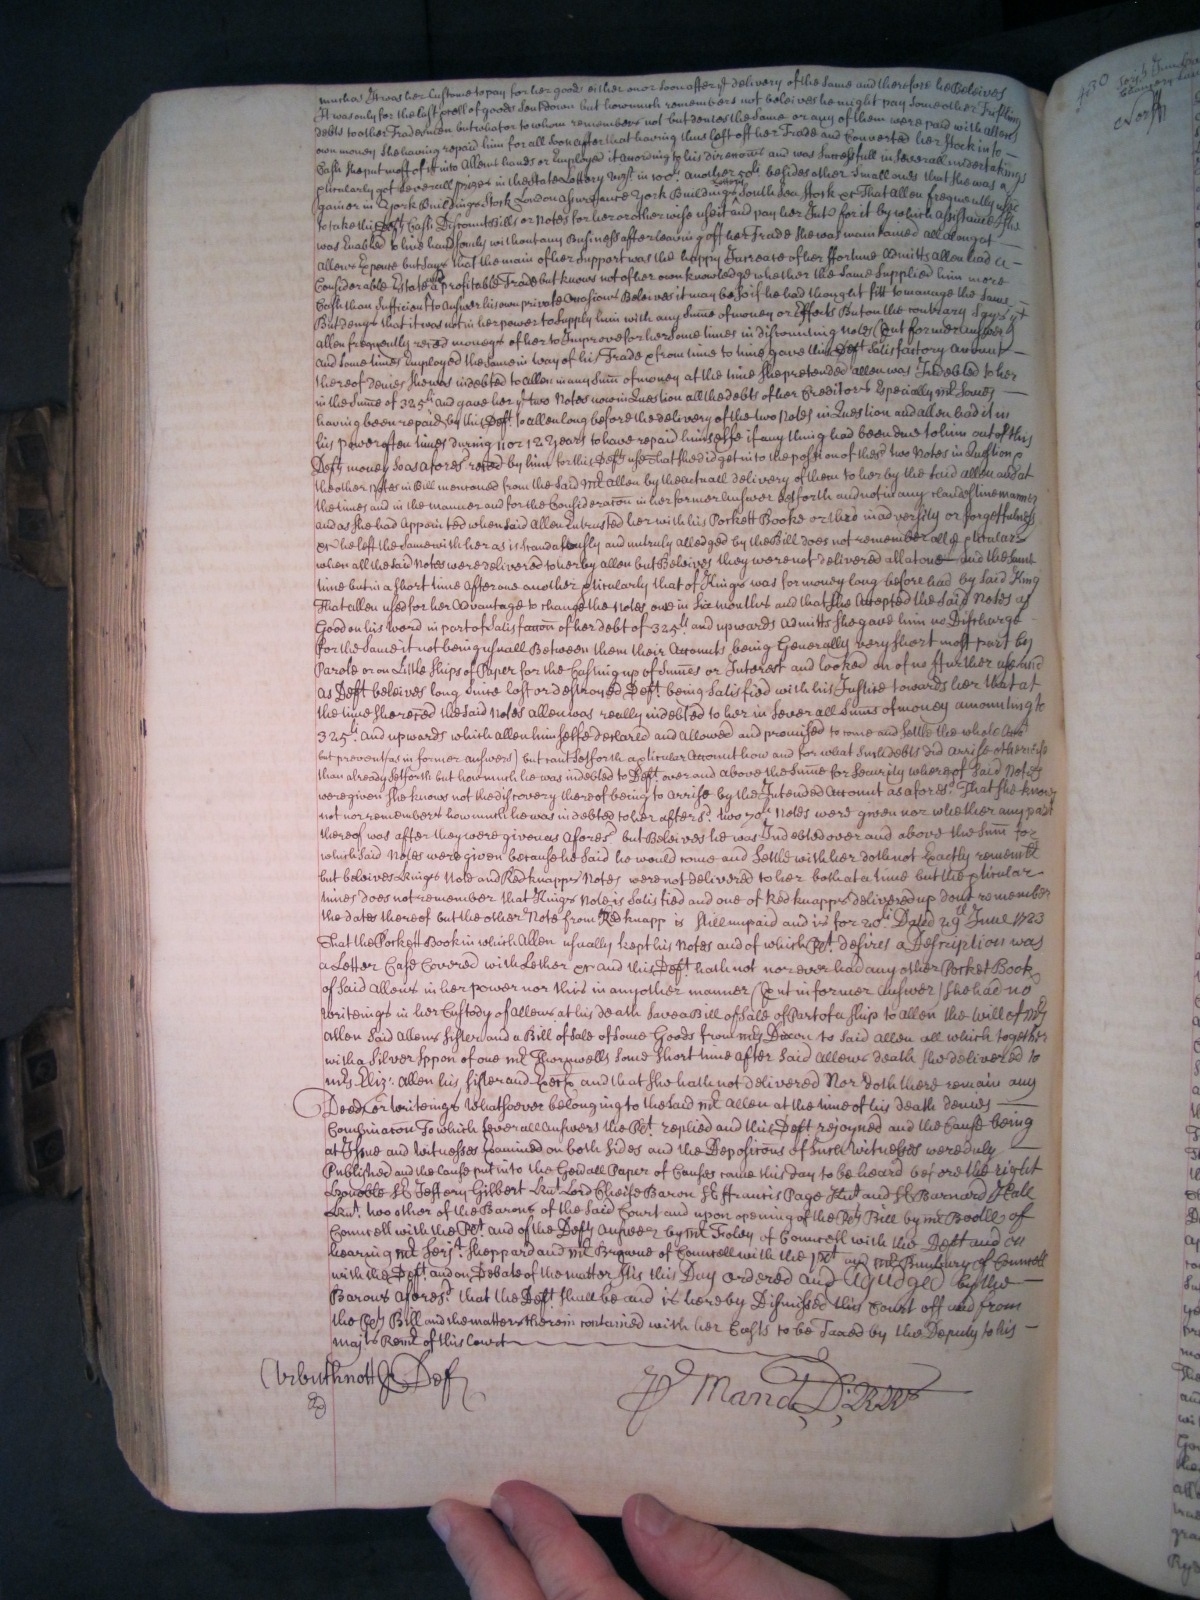 much as It was her Custome to pay for her goods either on or soon after yͤ delivery of the same and therefore he Beleives
It was only for the last prcell of goods sent down but how much remembers not beleives he might pay some other Trifling
debts to other Tradesmen but what or to whom remembers not but denies the same or any of them were paid with allens
own money She having repaid him for all Soon after that having thus left off her Trade and Converted her Stock into
Cash She put most of it into Allens hands or Employed it according to his direcc̃ons and was Successfull in Severall undertakings
pticularly got Severall prizes in the State Lottery vizᵗ in 100ˡⁱ another 50ˡⁱ besides other Small ones that She was a
gainer in York Buildings Stock London assurance York Buildings South Sea Stock &c That Allen frequently used
to take this Defts Cash Discount Bills or Notes for her or otherwise use it and pay her Intᵗ for it by which assistance She
was Enabled to live handsomly without any Business after leaving off her Trade She was maintained all along at
Allens Expence but Says that the main of her Support was the happy Increase of her ffortune Admitts Allen had a
Considerable Estate & profitable Trade but knows not of her own knowledge whether the Same Supplied him more
Cash than Sufficient to Answer his own private Occasions Beleives it may be So if he had thought fitt to manage the Same
But denys that it was not in her power to Supply him with any Sum̃e of money or Effects But on the contrary Says yᵗ
Allen frequently reced moneys of her to Improve for her Some times in discounting notes (Prout former Answer)
And Some times Employed the Same in way of his Trade & from time to time gave this Deft Satisfactory Account
thereof denies She was indebted to Allen in any Sum̃ of money at the time She pretended Allen was Indebted to her
in the Sum̃e of 325ˡⁱ And gave her yͤ two Notes now in Question all the debts of her Creditors Especially Mͬ Jones
having been repaid by this Deft to Allen long before the delivery of the two Notes in Question and Allen had it in
his power often times during 11 or 12 years to have repaid himselfe if any thing had been due to him out of this
Defts money So as aforesᵈ reced by him for this Defts use That She did get into the possion of these two Notes in Question &
the other Notes in Bill mentioned from the Said Mͬ Allen by the actuall delivery of them to her by the Said Allen and at
the times and in the manner and for the Consideracõn in her former Answer Setforth and not in any clandestine manner
and as She had Appointed when Said Allen Entrusted her with his Pockett Booke or thro inadversity or forgetfulness
&c he left the Same with her as is Scandalously and untruly alledged by the Bill does not remember all yͤ pticulars
when all the Said Notes were delivered to her by Allen but Beleives they were not delivered all at one and the Same
time but in a Short time after one another pticularly that of Kings was for money long before had by Said King
That Allen used for her Advantage to change the Notes once in Six months and that She Accepted the Said Notes as
Good on his word in part of Satisfaccõn of her debt of 325ˡⁱ and upwards Admitts She gave him no Discharge
for the Same it not being usuall Between them their Accounts being Generally very Short most part by
Parole or on Little Slips of Paper for the Casting up of Sum̃es or Interest and looked on of no ffurther use and
as Deft beleives long Since lost or destroyed Deft being Satisfied with his Justice towards her that at
the time She reced the Said Notes Allen was really indebted to her in Severall Sums of money amounting to
325ˡⁱ And upwards which Allen himselfe declared and Allowed and promised to come and Settle the whole Acc
but prevent (as in former answers) but cant Setforth a pticular Account how and for what Such debts did arrise otherwise
than already Setforth but how much he was indebted to Deft over and above the Sum̃e for Security whereof Said Notes
were given She knows not the discovery thereof being to arrise by the Intended Account as aforesᵈ That She knows
not nor remembers how much he was indebted to her after sᵈ two 70ˡⁱ Notes were given nor whether any part
thereof was after they were given as aforesᵈ but Beleives he was Indebted over and above the Sum̃ for
which Said Notes were given because he Said he would come and Settle with her doth not Exactly rememb̃
but beleives Kings Note and Redknapps Notes were not delivered to her both at a time but the pticular
times does not remember that Kings Note is Satisfied and one of Redknapps delivered up dont remember
the dates thereof but the other Note from Redknapp is Still unpaid and is for 20ˡⁱ Dated 29ᵗʰ June 1723
That the Pockett Book in which Allen usually kept his Notes and of which Pet desires a Description was
a Letter Case Covered with Lether &c and this Deft hath not nor ever had any other Pocket Book
of Said Allens in her power nor this in any other manner (Prout in former Answer) She had no
writeings in her Custody of Allens at his death Save a Bill of Sale of Part of a Ship to Allen the Will of Mͬˢ
Allen Said Allens Sister and a Bill of Sale of Some Goods from Mͬˢ Dacon to Said Allen all which together
with a Silver Spoon of one Mͬ Thornwells Some Short time after Said Allens death She delivered to
Mͬˢ Elizᵃ Allen his Sister and and that She hath not delivered Nor doth there remain any
Deeds or writeings Whatsoever belonging to the Said Mͬ Allen at the time of his death denies
Combinacõn To which Severall Answers the Pet replied and this Deft rejoyned and the Cause being
at Issue and Witnesses Examined on both Sides and the Deposicõns of Such Witnesses were duly
Published and the Cause put into the Geñall Paper of Causes came this day to be heard before the right
Honoble Sͬ Jeffery Gilbert Knᵗ Lord Cheife Baron Sͬ ffrancis Page Knᵗ and Sͬ Barnard Hale
Knᵗ two other of the Barons of the Said Court and upon opening of the Pets Bill by Mͬ Bootle of
Councell with the Pet and of the Defts Answer by Mͬ Foley of Councell with the Deft and on
hearing Mͬ Serjᵗ Sheppard and Mͬ Browne of Councell with the Pet and Mͬ Bunbury of Councell
with the Deft and on Debate of the matter Itis this Day ordered and Adjudged by the
Barons aforesᵈ that the Deft Shall be and is hereby Dismissed this Court off and from
the Pets Bill and the matters therein contained with her Costs to be Taxed by the Deputy to his
Majts Remͬ of this Court
Arbuthnott Jͬ Def
Mand D: RRͬ
480